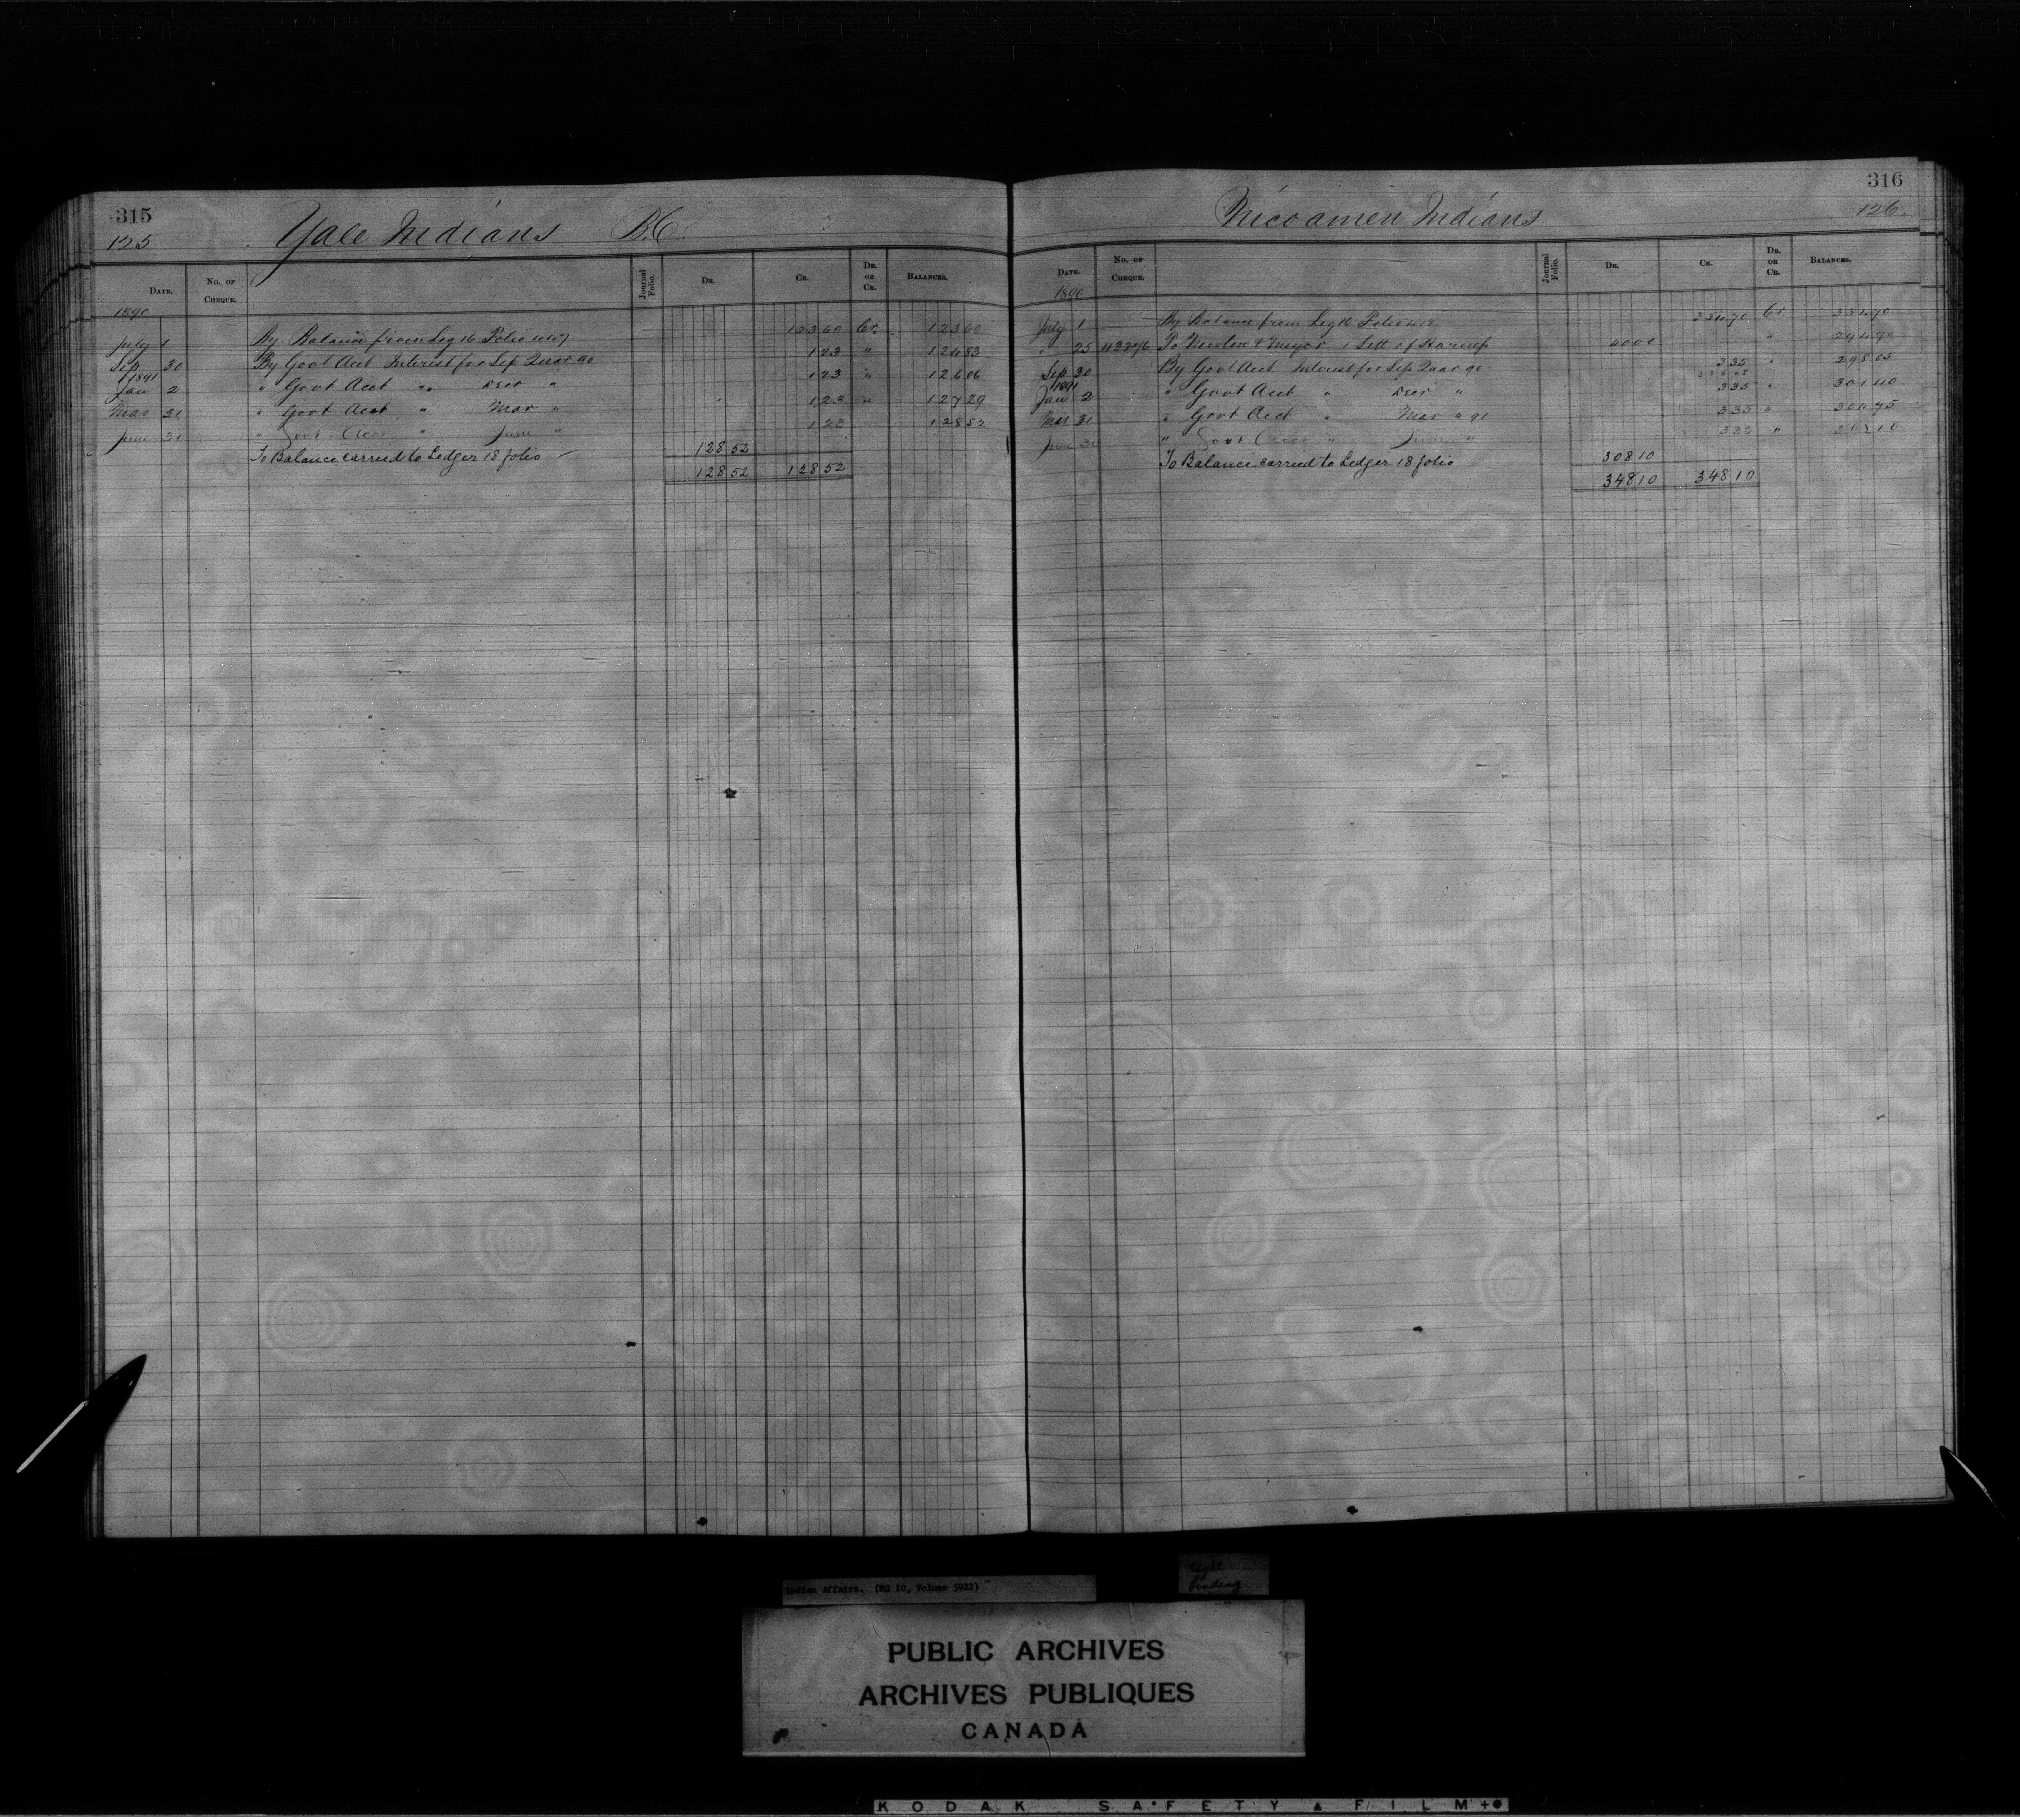 315
125
Yale Indians B.C.
Date. No. of Cheque. Journal Folio. Dr. Cr. Dr. or Cr. Balances.
1890
July 1 By Balance from Leg 16 Folio 123 60 Cr. 123 60
Sep 30 By Govt Acct Interest for Sep Quar 90 1 23 " 124 83
1891
Jan 2 " Govt Acct " Decr " 1 23 " 126 06
Mar 31 " Govt Acct " Mar " 1 23 " 127 29
June 30 " Govt Acct " June " 1 23 128 52
To Balance carried to Ledger 18 folio 128 52
128 52 128 52
316
126.
Nicoamen Indians
Date. No. of Cheque. Journal Folio. Dr. Cr. Dr. or Cr. Balances.
1890
July 1 By Balance from Leg 16 Folio 334 70 Cr 334 70
" 25 To Newton & 1 Sett of 40 00 " 294 70
Sep 30 By Govt Acct Interest for Sep Quar 90 3 35 " 298 05
1891
Jan 2 " Govt Acct " Decr " 3 35 " 301 40
Mar 31 " Govt Acct " Mar " 91 3 35 " 304 75
June 30 " Govt Acct " June " 3 35 " 308 10
To Balance carried to Ledger 18 folio 308 10
348 10 348 10
Indian Affairs. (RG 10, Volume 5922)
tight
binding
PUBLIC ARCHIVES
ARCHIVES PUBLIQUES
CANADA
KODAK SAFETY FILM